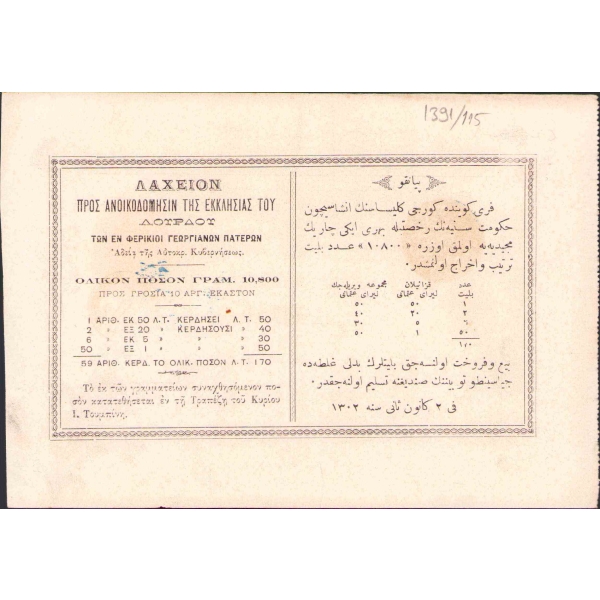 1391/115
ΛΑΧΕΙΟΝ
ΠΡΟΣ ΑΝΟΙΚΟΔΟΜΗΣΙΝ ΤΗΣ ΕΚΚΛΗΣΙΑΣ ΤΟΥ
ΛΟΥΡΔΟΥ
ΤΩΝ ΕΝ ΦΕΡΙΚΙΟΙ ΓΕΩΡΓΙΑΝΩΝ ΠΑΤΕΡΩΝ
Ἀδείᾳ τῆς Αὐτοκρ. Κυβερνήσεως.
ΟΛΙΚΟΝ ΠΟΣΟΝ ΓΡΑΜ. 10,800
ΠΡΟΣ ΓΡΟΣΙΑ 10 ΑΡΓ. ΕΚΑΣΤΟΝ
1 ΑΡΙΘ. ΕΚ 50 Λ. Τ. ΚΕΡΔΗΣΕΙ Λ. Τ. 50
2 » ΕΞ 20 » ΚΕΡΔΗΣΟΥΣΙ » 40
6 » ΕΚ 5 » » » 30
50 » ΕΞ 1 » » » 50
59 ΑΡΙΘ. ΚΕΡΔ. ΤΟ ΟΛΙΚ. ΠΟΣΟΝ Λ. Τ. 170
Τὸ ἐκ τῶν γραμματείων συναχθησόμενον πο-
σὸν κατατεθήσεται ἐν τῇ Τραπέζῃ τοῦ Κυρίου
Ι. Τουμπίνη.
پیانقو
فری کوینده کورجی کلیساسنك انشاسیچون
حکومت سنیه‌نك رخصتله بهری ایکی چاریك
مجیدیه‌یه اولمق اوزره «١٠٨٠٠» عدد بلیت
ترتیب و اخراج اولنمشدر.
عدد قزانیلان مجموعه ویریله‌جك
بلیت لیرای عثمانی لیرای عثمانی
١ ٥٠ ٥٠
٢ ٢٠ ٤٠
٦ ٥ ٣٠
٥٠ ١ ٥٠
١٧٠
بیع و فروخت اولنه‌جق بلیتلرك بدلی غلطه‌ده
صندیغنه تسلیم اولنه‌جقدر.
فی ٢ کانون ثانی سنه ١٣٠٢